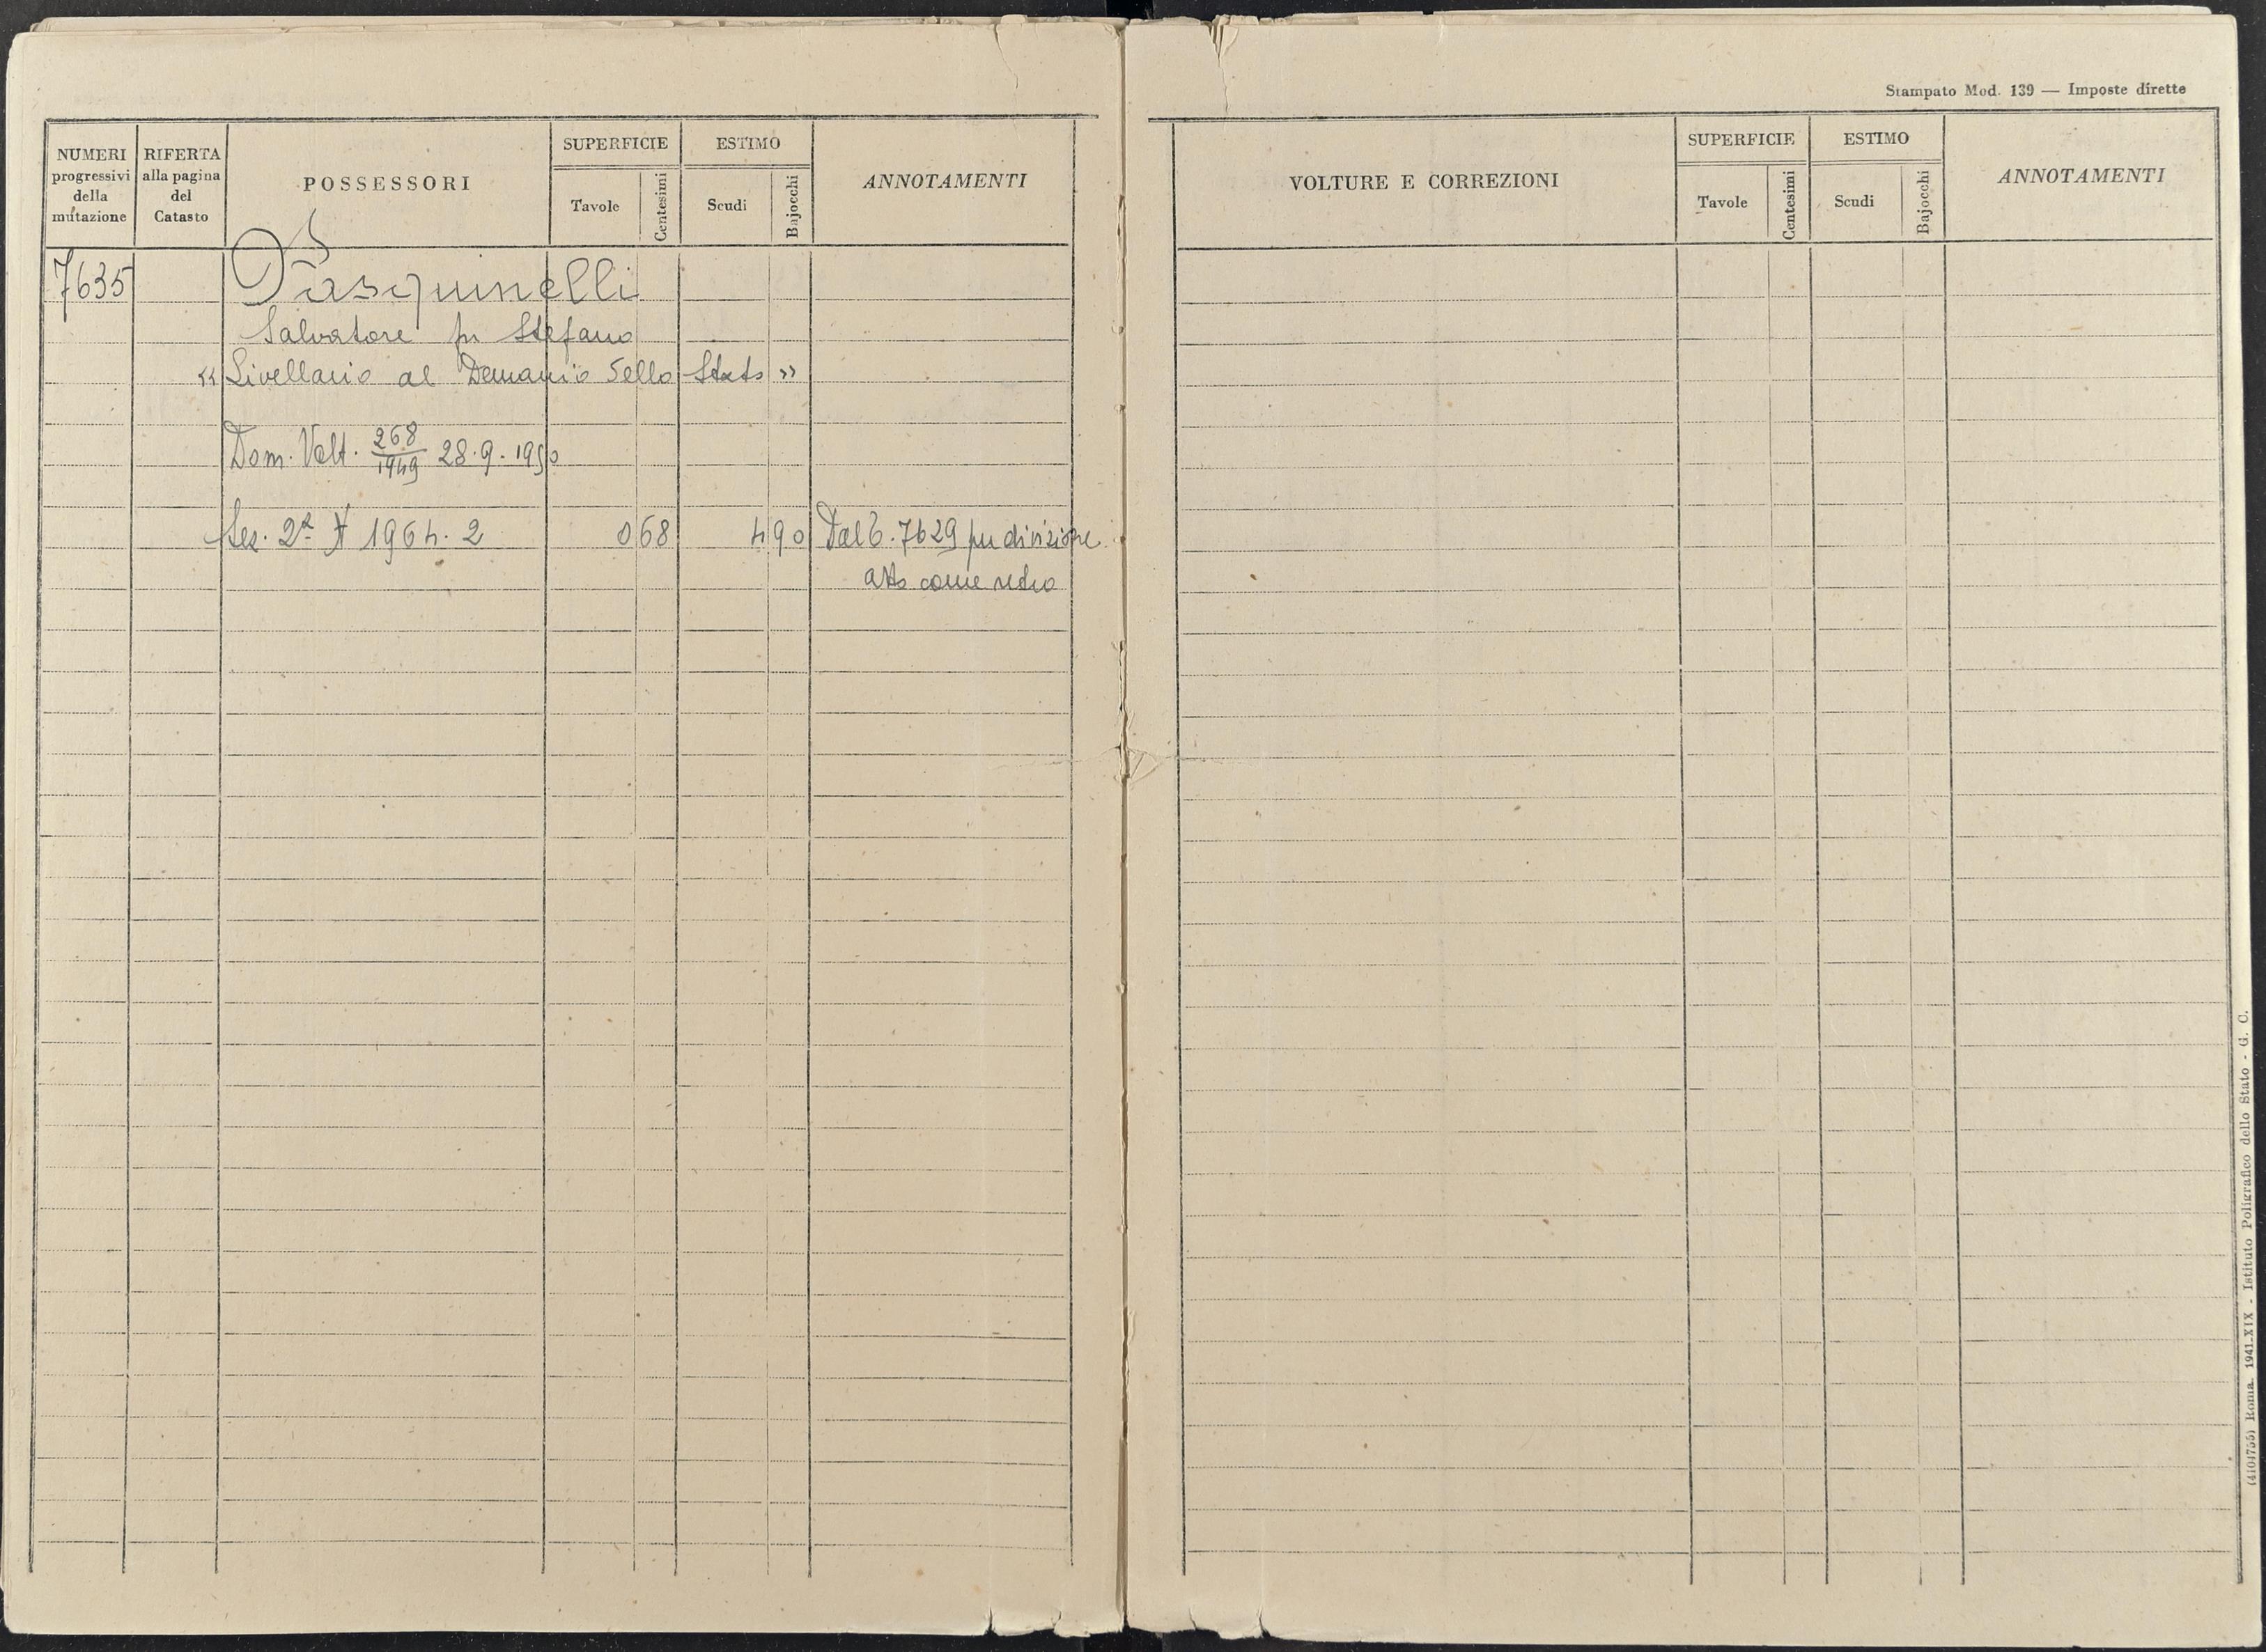 Stampato Mod. 139 — Imposte dirette
NUMERI progressivi della mutazione
RIFERTA alla pagina del Catasto
POSSESSORI
SUPERFICIE
Tavole
Centesimi
ESTIMO
Scudi
Bajocchi
ANNOTAMENTI
7635 Pasquinelli
Salvatore fu Stefano
« Livellario al Demanio dello Stato »
Dom. Volt. 268/1949 28.9.1950
Sez. 2ª 1964.2 0 68 4 90 Dal 6.7629 per divisione
atto come retro
VOLTURE E CORREZIONI
SUPERFICIE
Tavole
Centesimi
ESTIMO
Scudi
Bajocchi
ANNOTAMENTI
(4101755) Roma, 1941-XIX - Istituto Poligrafico dello Stato - G. C.